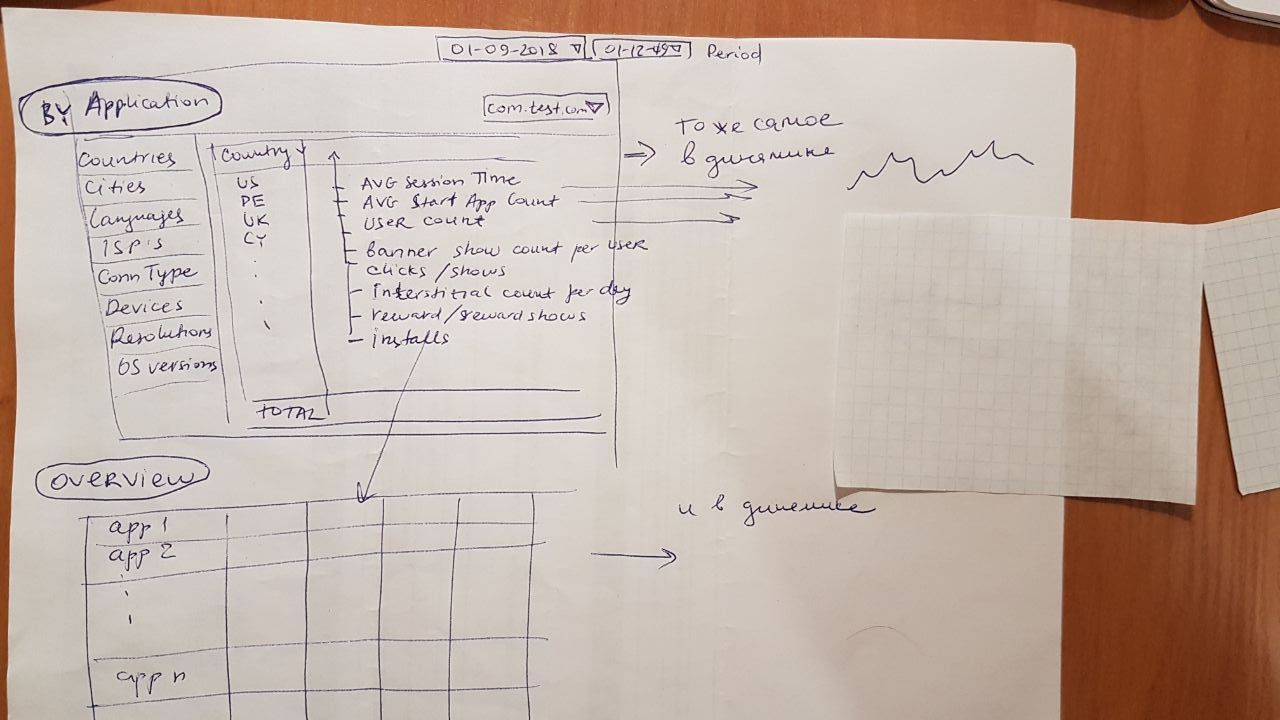 01-09-2018
Period
BY Application
com.test.com
Countries
Cities
Languajes
ISP'S
Conn Type
Devices
Resolutions
OS versions
Country
US
DE
UK
CY
TOTAL
AVG Session Time
AVG Start App Count
User count
Banner show count per user
clicks/shows
Interstitial count per day
reward/reward shows
installs
тоже самое
в динамике
OVERVIEW
app 1
app 2
app n
и в динамике